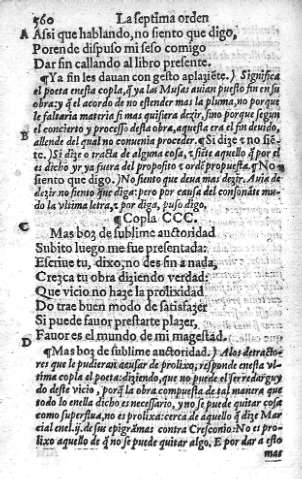 560 La septima orden
A Assi que hablando, no siento que digo,
Porende dispuso mi seso comigo
Dar fin callando al libro presente.
¶Ya fin les dauan con gesto aplaziẽte.) Significa
el poeta enesta copla, q̃ ya las Musas auian puesto fin en su
obra: y q̃ el acordo de no estender mas la pluma, no porque
le faltaria materia si mas quisiera dezir, sino porque segun
el concierto y processo desta obra, aquesta era el fin deuido,
B allende del qual no conuenia proceder. ¶Si dize ꝛ no siẽ-
te.) Si dize o tracta de alguna cosa, ꝛ siẽte aquello q̃ por el
es dicho yr ya fuera del proposito ꝛ ordẽ propuesta. ¶No
siento que digo.) No siento que deua mas dezir. Auia de
dezir no siento que diga: pero por causa del consonãte mu-
do la vltima letra, ꝛ por diga, puso digo.
¶Copla CCC.
C Mas boz de sublime auctoridad
Subito luego me fue presentada:
Escriue tu, dixo, no des fin a nada,
Crezca tu obra diziendo verdad:
Que vicio no haze la prolixidad
Do trae buen modo de satisfazer
Si puede fauor prestarte plazer,
Fauor es el mundo de mi magestad.
D ¶Mas boz de sublime auctoridad.) Alos detracto-
res que le pudieran acusar de prolixo, responde enesta vl-
tima copla el poeta: diziendo, que no puede el ser redarguy
do deste vicio, porq̃ la obra compuesta de tal manera que
todo lo enella dicho es necessario, y no se puede quitar cosa
como superflua, no es prolixa: cerca de aquello q̃ dize Mar
cial enel.ij. de sus epigrãmas contra Cresconio: No es pro-
lixo aquello de q̃ no se puede quitar algo. E por dar a esto
mas